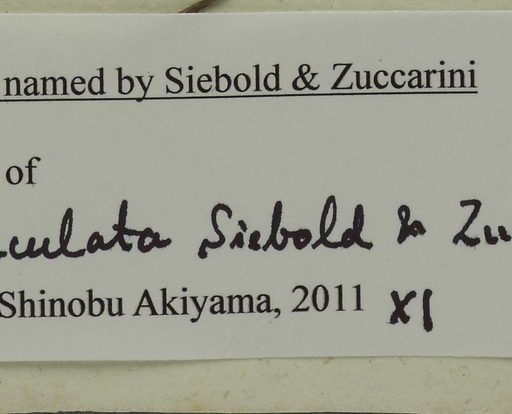 named by Siebold & Zuccarini
of
culata Siebold & Zu
Shinobu Akiyama, 2011 XI